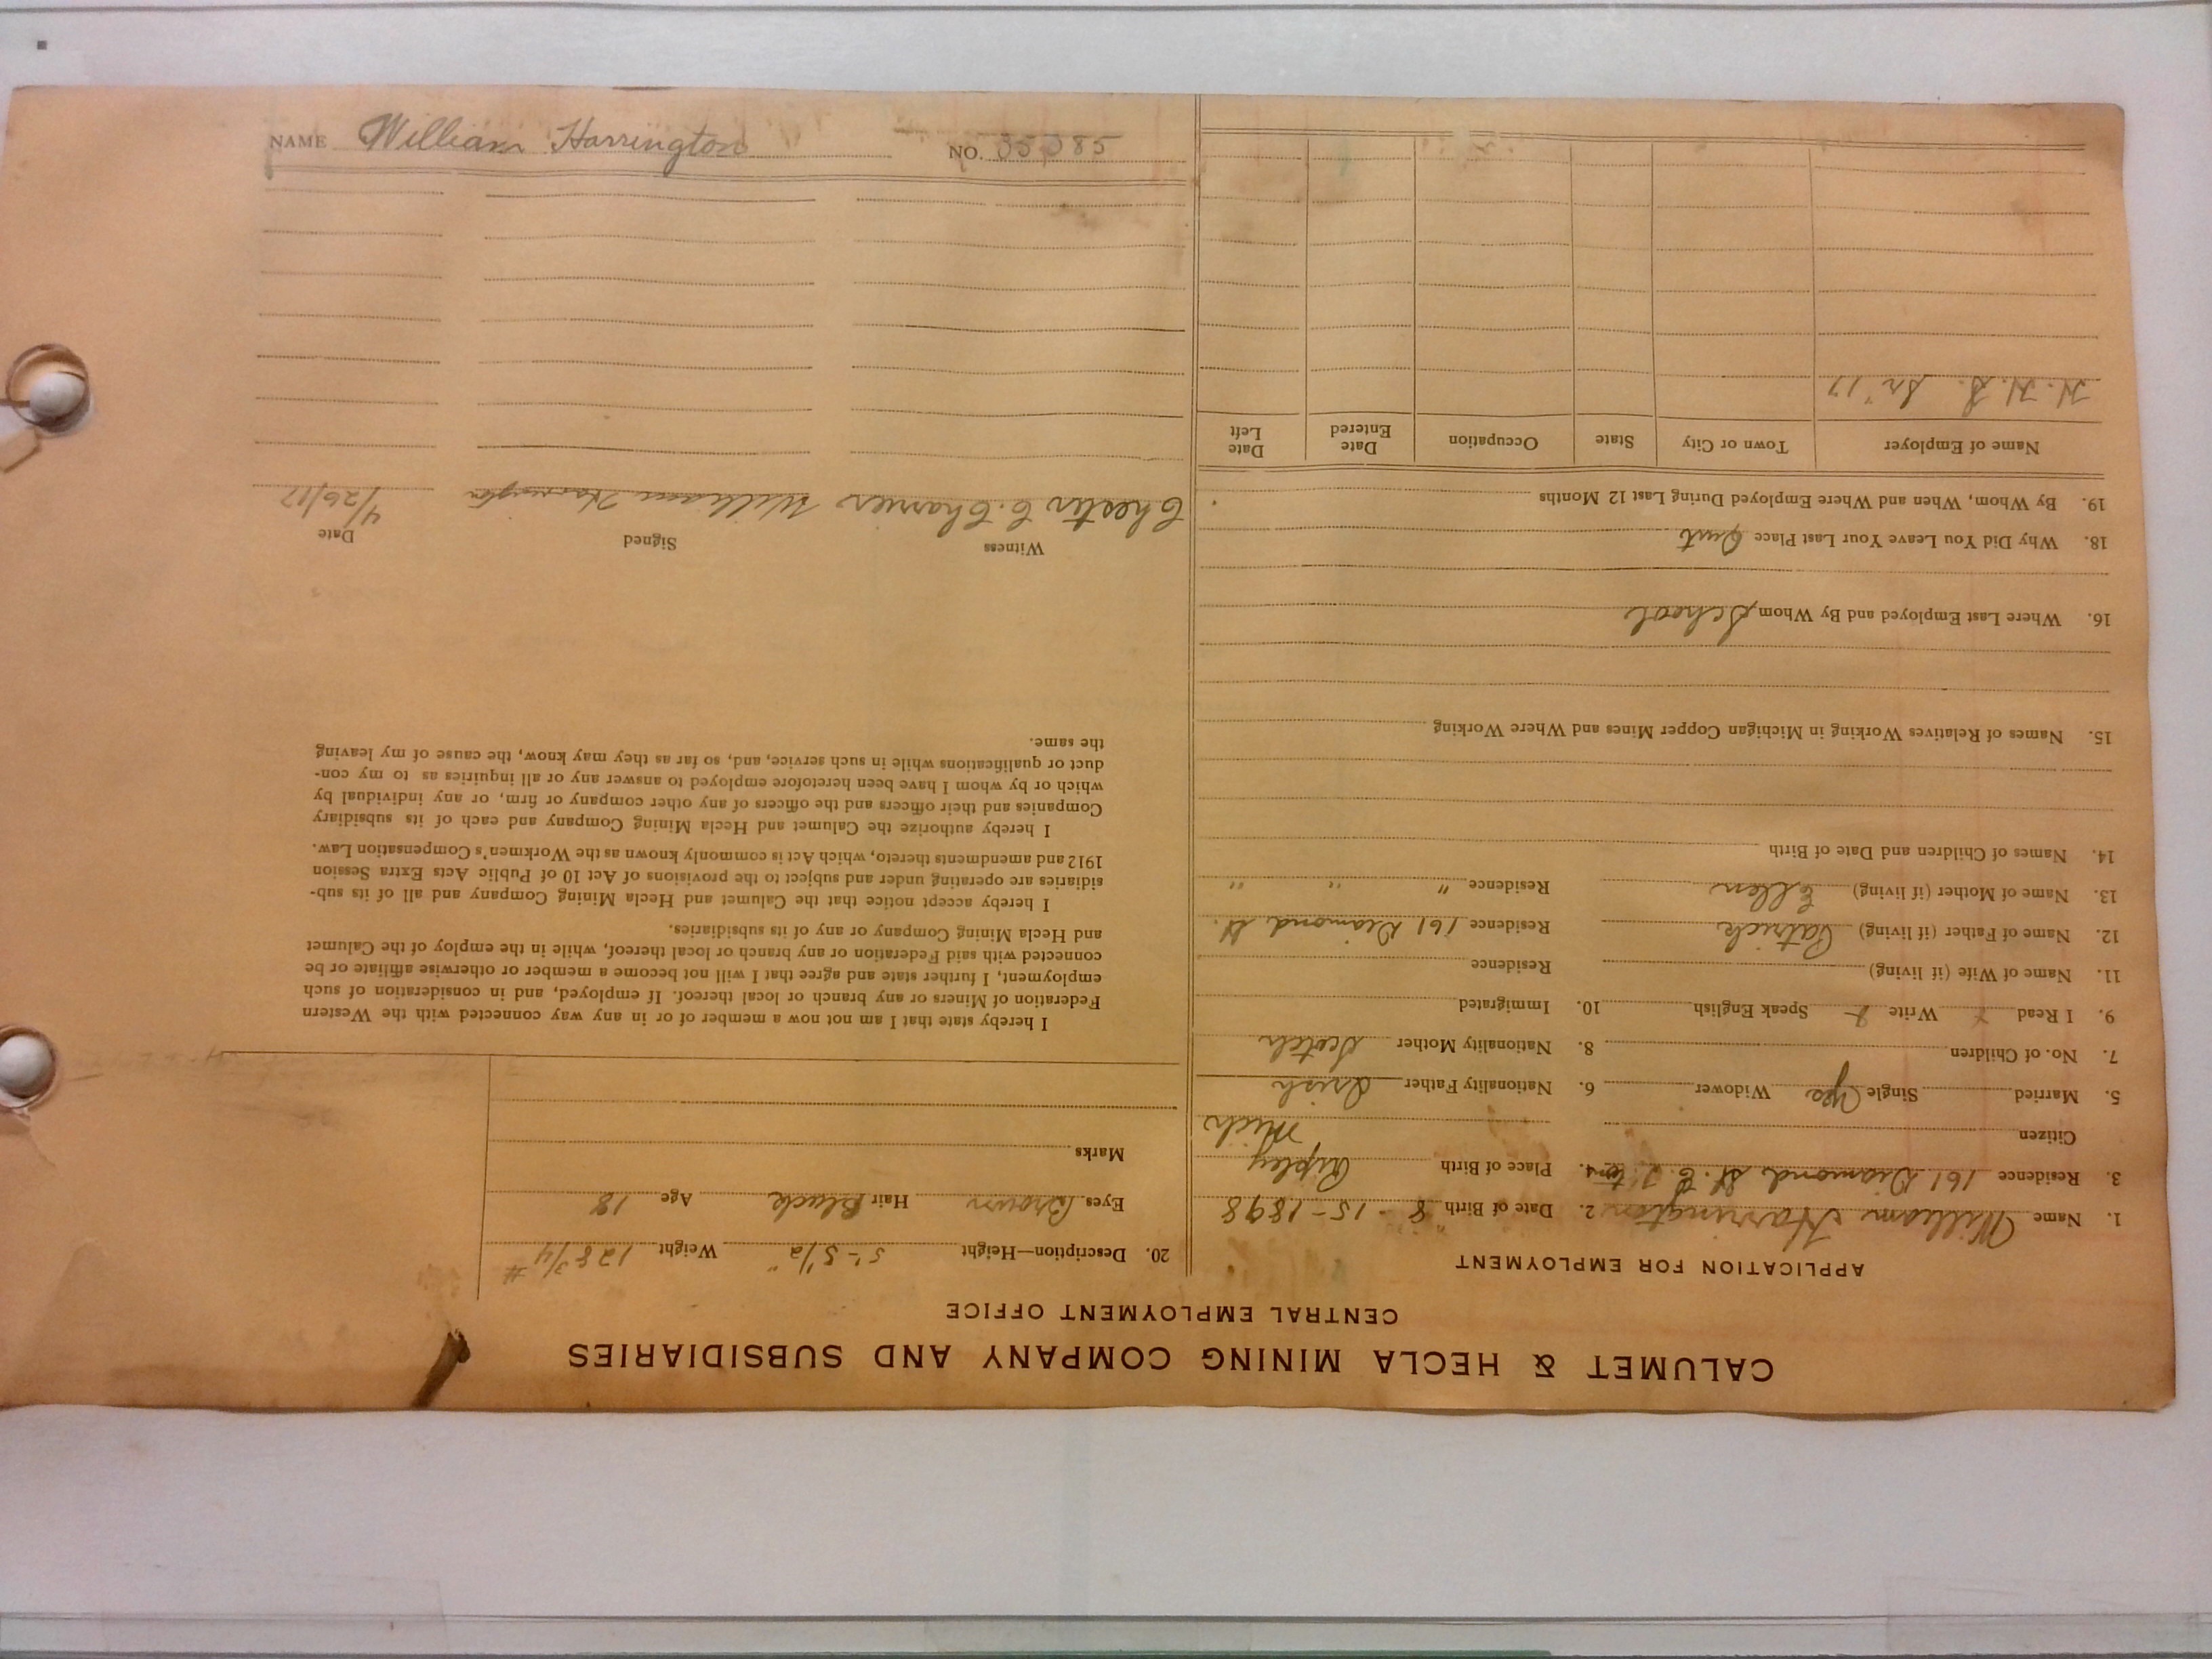 CALUMET & HECLA MINING COMPANY AND SUBSIDIARIES
CENTRAL EMPLOYMENT OFFICE
APPLICATION FOR EMPLOYMENT
1. Name William Harrington 2. Date of Birth 8-15-1898
3. Residence 161 Diamond St. 4. Place of Birth Ripley
Mich
Citizen
5. Married Single Yes Widower 6. Nationality Father Irish
7. No. of Children 8. Nationality Mother Scotch
9. I Read Write Speak English 10. Immigrated
11. Name of Wife (if living) Residence
12. Name of Father (if living) Patrick Residence 161 Diamond St.
13. Name of Mother (if living) Ellen Residence " " "
14. Names of Children and Date of Birth
15. Names of Relatives Working in Michigan Copper Mines and Where Working
16. Where Last Employed and By Whom School
18. Why Did You Leave Your Last Place Quit
19. By Whom, When and Where Employed During Last 12 Months
Name of Employer Town or City State Occupation Date Entered Date Left
H. H. S. '17
20. Description—Height 5'-5 1/2" Weight 128 3/4 #
Eyes Brown Hair Black Age 18
Marks
I hereby state that I am not now a member of or in any way connected with the Western
Federation of Miners or any branch or local thereof. If employed, and in consideration of such
employment, I further state and agree that I will not become a member or otherwise affiliate or be
connected with said Federation or any branch or local thereof, while in the employ of the Calumet
and Hecla Mining Company or any of its subsidiaries.
I hereby accept notice that the Calumet and Hecla Mining Company and all of its sub-
sidiaries are operating under and subject to the provisions of Act 10 of Public Acts Extra Session
1912 and amendments thereto, which Act is commonly known as the Workmen's Compensation Law.
I hereby authorize the Calumet and Hecla Mining Company and each of its subsidiary
Companies and their officers and the officers of any other company or firm, or any individual by
which or by whom I have been heretofore employed to answer any or all inquiries as to my con-
duct or qualifications while in such service, and, so far as they may know, the cause of my leaving
the same.
Witness Signed Date
Chester C. William Harrington 4/26/17
NAME William Harrington NO. 35385